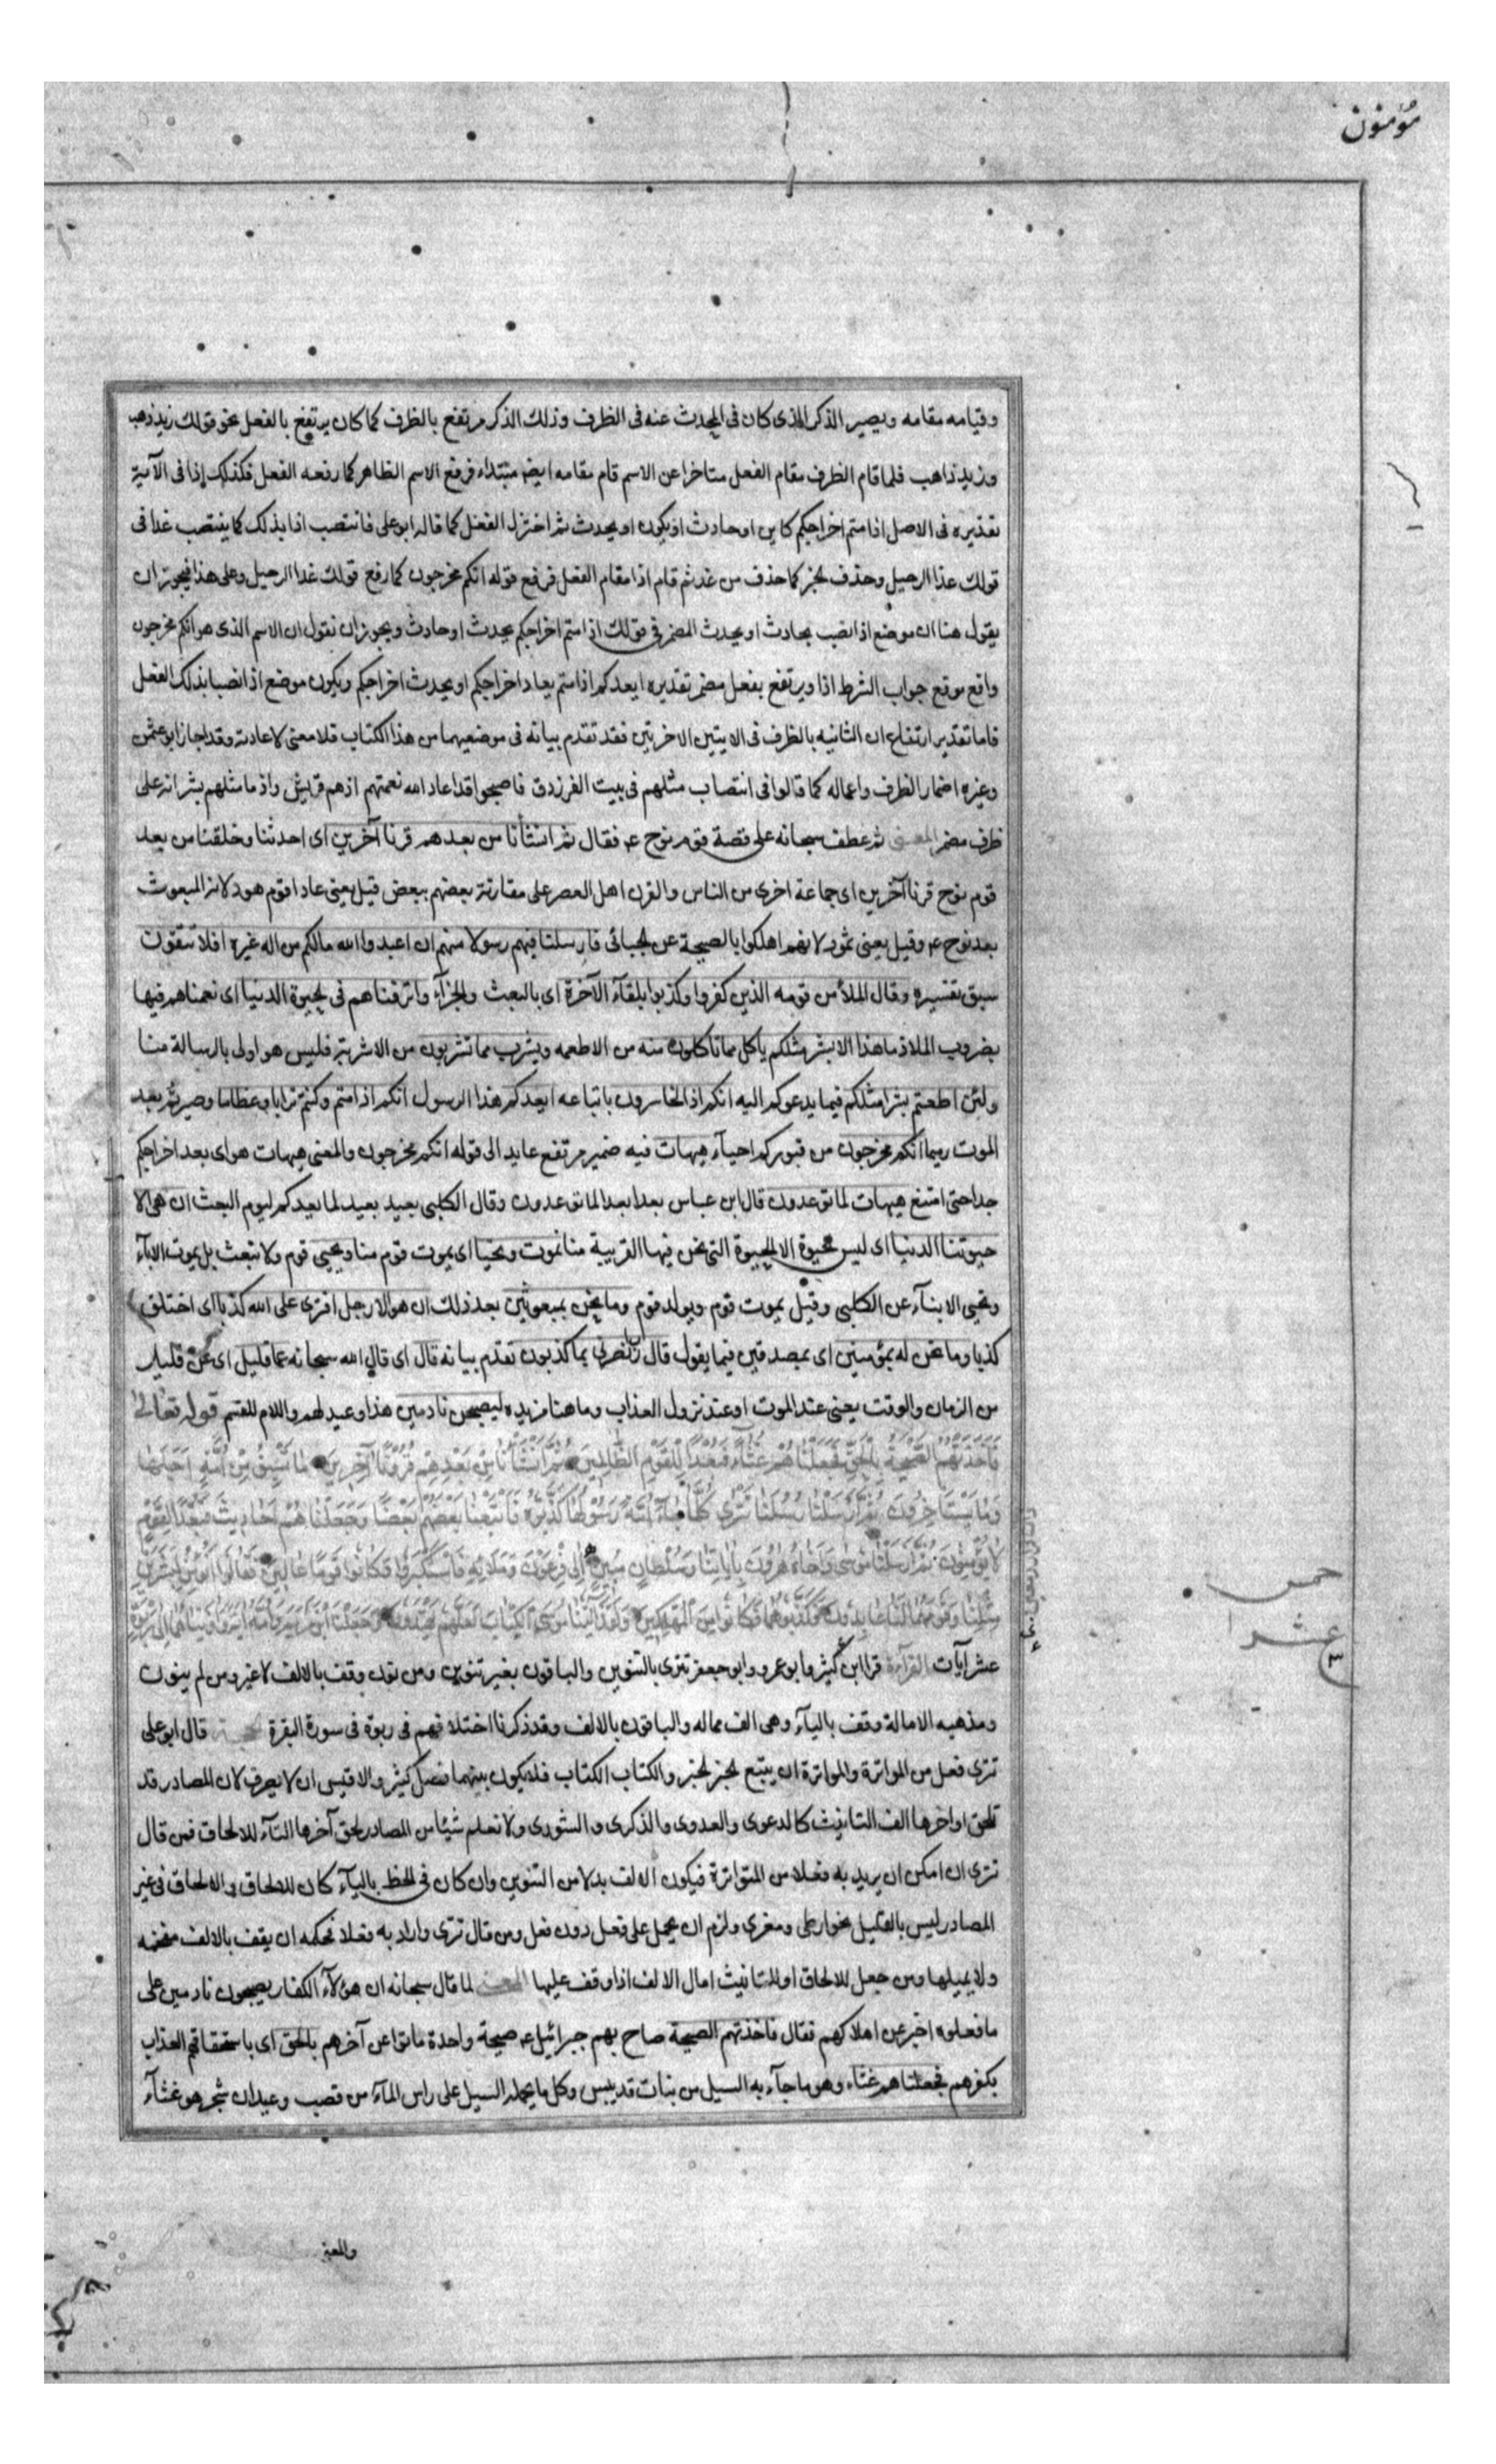 مؤمنون
وقيامه مقامه ويصير الذكر الذى كان فى المحدث عنه فى الظرف وذلك الذكر مرتفع بالظرف كما كان يرتفع بالفعل نحو قولك زيد ذهب
وزيد ذاهب فلما قام الظرف مقام الفعل متاخرا عن الاسم قام مقامه ايضا مبتداء فرفع الاسم الظاهر كما رفعه الفعل فكذلك اذا فى الآية
تقديره فى الاصل اذا متم اخراجكم كاين او حادث او يكون او يحدث ثم اختزل الفعل كما قاله ابو على فانتصب اذا بذلك كما ينتصب غدا فى
قولك غدا الرحيل وحذف الخبر كما حذف من غد ثم قام اذا مقام الفعل فرفع قوله انكم مخرجون كما رفع قولك غدا الرحيل وعلى هذا فيجوز ان
يقول هنا ان موضع اذا نصب بحادث او يحدث المضمر فى قولك اذا متم اخراجكم يحدث او حادث ويجوز ان نقول ان الاسم الذى هو انكم مخرجون
واقع موقع جواب الشرط اذا ويرتفع بفعل مضمر تقديره ايعدكم اذا متم يعاد اخراجكم او يحدث اخراجكم ويكون موضع اذا نصبا بذلك الفعل
فاما تقدير ارتفاع ان الثانيه بالظرف فى الايتين الاخرتين فقد تقدم بيانه فى موضعيهما من هذا الكتاب فلا معنى لاعادته وقد اجاز ابو عثمن
وغيره اضمار الظرف واعماله كما قالوا فى انتصاب مثلهم فى بيت الفرزدق فاصبحوا قد اعاد الله نعمتهم اذ هم قريش واذ ما مثلهم بشر انه على
ظرف مضمر المعنى ثم عطف سبحانه على قصة قوم نوح ع فقال ثم انشأنا من بعدهم قرنا آخرين اى احدثنا وخلقنا من بعد
قوم نوح قرنا آخرين اى جماعة اخرى من الناس والقرن اهل العصر على مقارنة بعضهم ببعض قيل يعنى عادا قوم هود لانه المبعوث
بعد نوح ع وقيل يعنى ثمود لانهم اهلكوا بالصيحة عن الجبائى فارسلنا فيهم رسولا منهم ان اعبدوا الله مالكم من اله غيره افلا تتقون
سبق تفسيره وقال الملأ من قومه الذين كفروا وكذبوا بلقآء الآخرة اى بالبعث والجزآء واترفناهم فى الحيوة الدنيا اى نعمناهم فيها
بضروب الملاذ ما هذا الا بشر مثلكم ياكل مما تاكلون منه من الاطعمه ويشرب مما تشربون من الاشربة فليس هو اولى بالرسالة منا
ولئن اطعتم بشرا مثلكم فيما يدعوكم اليه انكم اذا لخاسرون باتباعه ايعدكم هذا الرسول انكم اذا متم وكنتم ترابا وعظاما وصيرتم بعد
الموت رميما انكم مخرجون من قبوركم احيآء هيهات فيه ضمير مرتفع عايد الى قوله انكم مخرجون والمعنى هيهات هو اى بعد اخراجكم
جدا حتى امتنع هيهات لما توعدون قال ابن عباس بعدا بعدا لما توعدون وقال الكلبى بعيد بعيد لما يعدكم ليوم البعث ان هى الا
حيوتنا الدنيا اى ليس الحيوة الا الحيوة التى نحن فيها القريبة منا نموت ونحيا اى يموت قوم منا ويحيى قوم ولا نبعث بل يموت الابآء
ويحيى الابنآء عن الكلبى وقيل يموت قوم ويولد قوم وما نحن بمبعوثين بعد ذلك ان هو الا رجل افترى على الله كذبا اى اختلق
كذبا وما نحن له بمؤمنين اى بمصدقين فيما يقول قال رب انصرنى بما كذبون تقدم بيانه قال اى قال الله سبحانه عما قليل اى عن قليل
من الزمان والوقت يعنى عند الموت او عند نزول العذاب وما هنا مزيده ليصبحن نادمين هذا وعيد لهم واللام للقسم قوله تعالى
فَاَخَذَتْهُمُ الصَّيْحَةُ بِالْحَقِّ فَجَعَلْنَا هُمْ غُثَآءً فَبُعْدًا لِلْقَوْمِ الظَّالِمِينَ ثُمَّ اَنْشَأْنَا مِنْ بَعْدِهِمْ قُرُونًا آخَرِينَ مَا تَسْبِقُ مِنْ اُمَّةٍ اَجَلَهَا
وَمَا يَسْتَاْخِرُونَ ثُمَّ اَرْسَلْنَا رُسُلَنَا تَتْرَى كُلَّمَا جَآءَ اُمَّةً رَسُولُهَا كَذَّبُوهُ فَاَتْبَعْنَا بَعْضَهُمْ بَعْضًا وَجَعَلْنَا هُمْ اَحَادِيثَ فَبُعْدًا لِقَوْمٍ
لَا يُؤْمِنُونَ ثُمَّ اَرْسَلْنَا مُوسَى وَاَخَاهُ هٰرُونَ بِاٰيَاتِنَا وَسُلْطَانٍ مُبِينٍ اِلَى فِرْعَوْنَ وَمَلَائِهِ فَاسْتَكْبَرُوا وَكَانُوا قَوْمًا عَالِينَ فَقَالُوا اَنُؤْمِنُ لِبَشَرَيْنِ
مِثْلِنَا وَقَوْمُهُمَا لَنَا عَابِدُونَ فَكَذَّبُوهُمَا فَكَانُوا مِنَ الْمُهْلَكِينَ وَلَقَدْ اٰتَيْنَا مُوسَى الْكِتَابَ لَعَلَّهُمْ يَهْتَدُونَ وَجَعَلْنَا ابْنَ مَرْيَمَ وَاُمَّهُ اٰيَةً وَاٰوَيْنَاهُمَا اِلَى رَبْوَةٍ
خمس
عشر
عشر آيات القرآءة قرا ابن كثير وابو عمرو وابو جعفر تترى بالتنوين والباقون بغير تنوين ومن نون وقف بالالف لا غير ومن لم ينون
ومذهبه الامالة وقف باليآء وهى الف مماله والباقون بالالف وقد ذكرنا اختلافهم فى ربوة فى سورة البقرة الحجة قال ابو على
تترى فعلى من المواترة والمواترة ان يتبع الخبر الخبر والكتاب الكتاب فلا يكون بينهما فصل كثير والاقيس ان لا يصرف لان المصادر قد
تلحق اواخرها الف التانيث كالدعوى والعدوى والذكرى والشورى ولا نعلم شيئا من المصادر لحق آخرها اليآء للالحاق فمن قال
تترى ان امكن ان يريد به فعلا من المتواترة فيكون الالف بدلا من التنوين وان كان فى الخط باليآء كان للالحاق والالحاق فى غير
المصادر ليس بالقليل نحو ارطى ومعزى ولزم ان يحمل على فعلى دون فعل ومن قال تترى واراد به فعلا فحكمه ان يقف بالالف مفخمه
ولا يميلها ومن جعل للالحاق او للتانيث امال الالف اذا وقف عليها المعنى لما قال سبحانه ان هؤلآء الكفار يصبحون نادمين على
ما فعلوه اخبر عن اهلاكهم فقال فاخذتهم الصيحة صاح بهم جبرائيل ع صيحة واحدة ماتوا عن آخرهم بالحق اى باستحقاقهم العذاب
بكفرهم فجعلناهم غثاء وهو ما جآء به السيل من نبات قد يبس وكل ما يحمله السيل على راس المآء من قصب وعيدان شجر هو غثآء
والمعنى